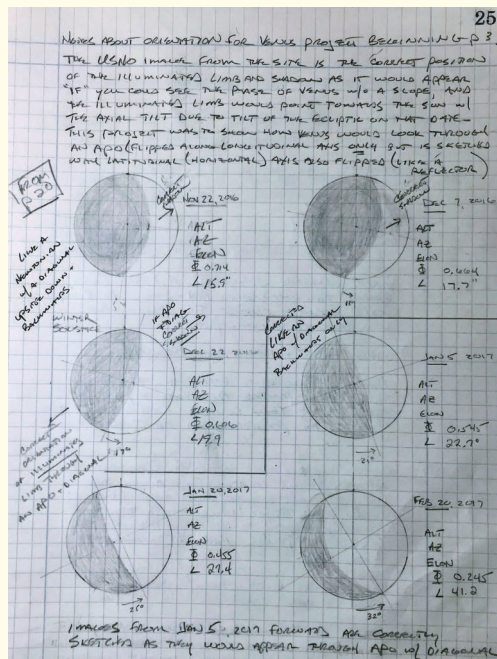 25
NOTES ABOUT ORIENTATION FOR VENUS PROJECT BEGINNING P 3
THE USNO IMAGE FROM THE SITE IS THE CORRECT POSITION
OF THE ILLUMINATED LIMB AND SHADOW AS IT WOULD APPEAR
"IF" YOU COULD SEE THE PHASE OF VENUS W/O A SCOPE, AND
THE ILLUMINATED LIMB WOULD POINT TOWARDS THE SUN W/
THE AXIAL TILT DUE TO TILT OF THE ECLIPTIC ON THAT DATE-
THIS PROJECT WAS TO SHOW HOW VENUS WOULD LOOK THROUGH
AN APO (FLIPPED ALONG LONGITUDINAL AXIS ONLY BUT IS SKETCHED
WITH LATITUDINAL (HORIZONTAL) AXIS ALSO FLIPPED (LIKE A
REFLECTOR)
FROM
P 20
LIKE A
NEWTONIAN
W/ A DIAGONAL
UPSIDE DOWN +
BACKWARDS
CORRECT
NOV 22, 2016
ALT
AZ
ELON
Φ 0.714
L 15.5"
CORRECT
DEC 7, 2016
ALT
AZ
ELON
Φ 0.664
L 17.7"
11°
WINTER
SOLSTICE
IF APO
+ DIAG
CORRECT
DEC 22 2016
ALT
AZ
ELON
Φ 0.606
L 19.9
17°
CORRECT
ORIENTATION
OF ILLUMINATED
LIMB THROUGH
AN APO + DIAGONAL
CORRECTED
LIKE AN
APO W/ DIAGONAL
BACKWARDS ONLY
JAN 5 2017
ALT
AZ
ELON
Φ 0.545
L 22.7"
21°
JAN 20, 2017
ALT
AZ
ELON
Φ 0.455
L 27.4
25°
FEB 20, 2017
ALT
AZ
ELON
Φ 0.245
L 41.2
32°
IMAGES FROM JAN 5, 2017 FORWARD ARE CORRECTLY
SKETCHED AS THEY WOULD APPEAR THROUGH APO W/ DIAGONAL